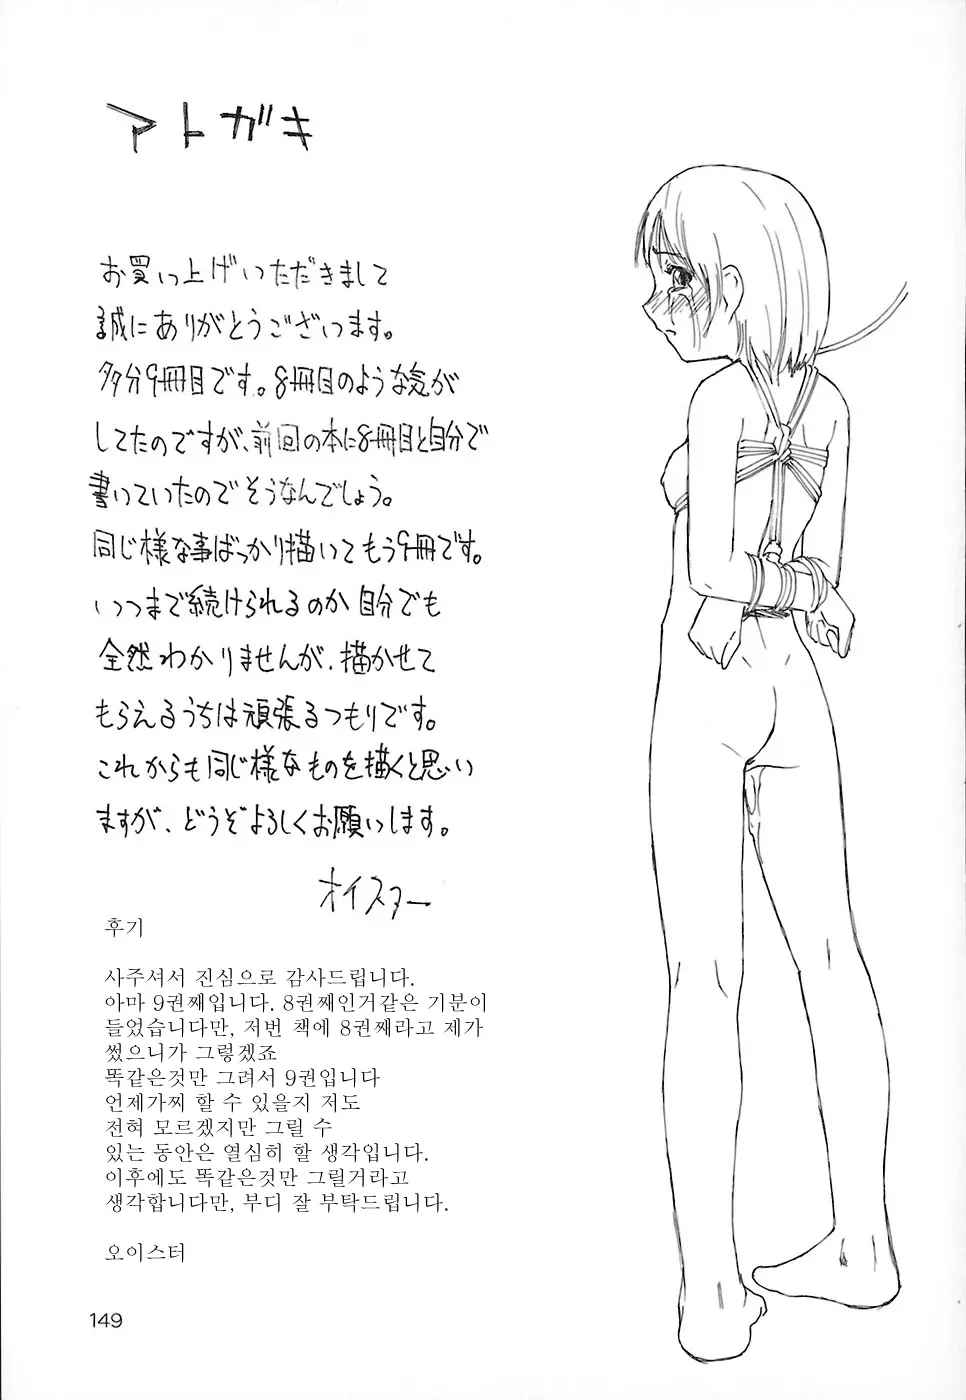 アトガキ
お買い上げいただきまして
誠にありがとうございます。
多分9冊目です。8冊目のような気が
してたのですが、前回の本に8冊目と自分で
書いていたのでそうなんでしょう。
同じ様な事ばっかり描いてもう9冊です。
いつまで続けられるのか自分でも
全然わかりませんが、描かせて
もらえるうちは頑張るつもりです。
これからも同じ様なものを描くと思い
ますが、どうぞよろしくお願いします。
オイスター
후기
사주셔서 진심으로 감사드립니다.
아마 9권째입니다. 8권째인거같은 기분이
들었습니다만, 저번 책에 8권째라고 제가
썼으니가 그렇겠죠
똑같은것만 그려서 9권입니다
언제가찌 할 수 있을지 저도
전혀 모르겠지만 그릴 수
있는 동안은 열심히 할 생각입니다.
이후에도 똑같은것만 그릴거라고
생각합니다만, 부디 잘 부탁드립니다.
오이스터
149